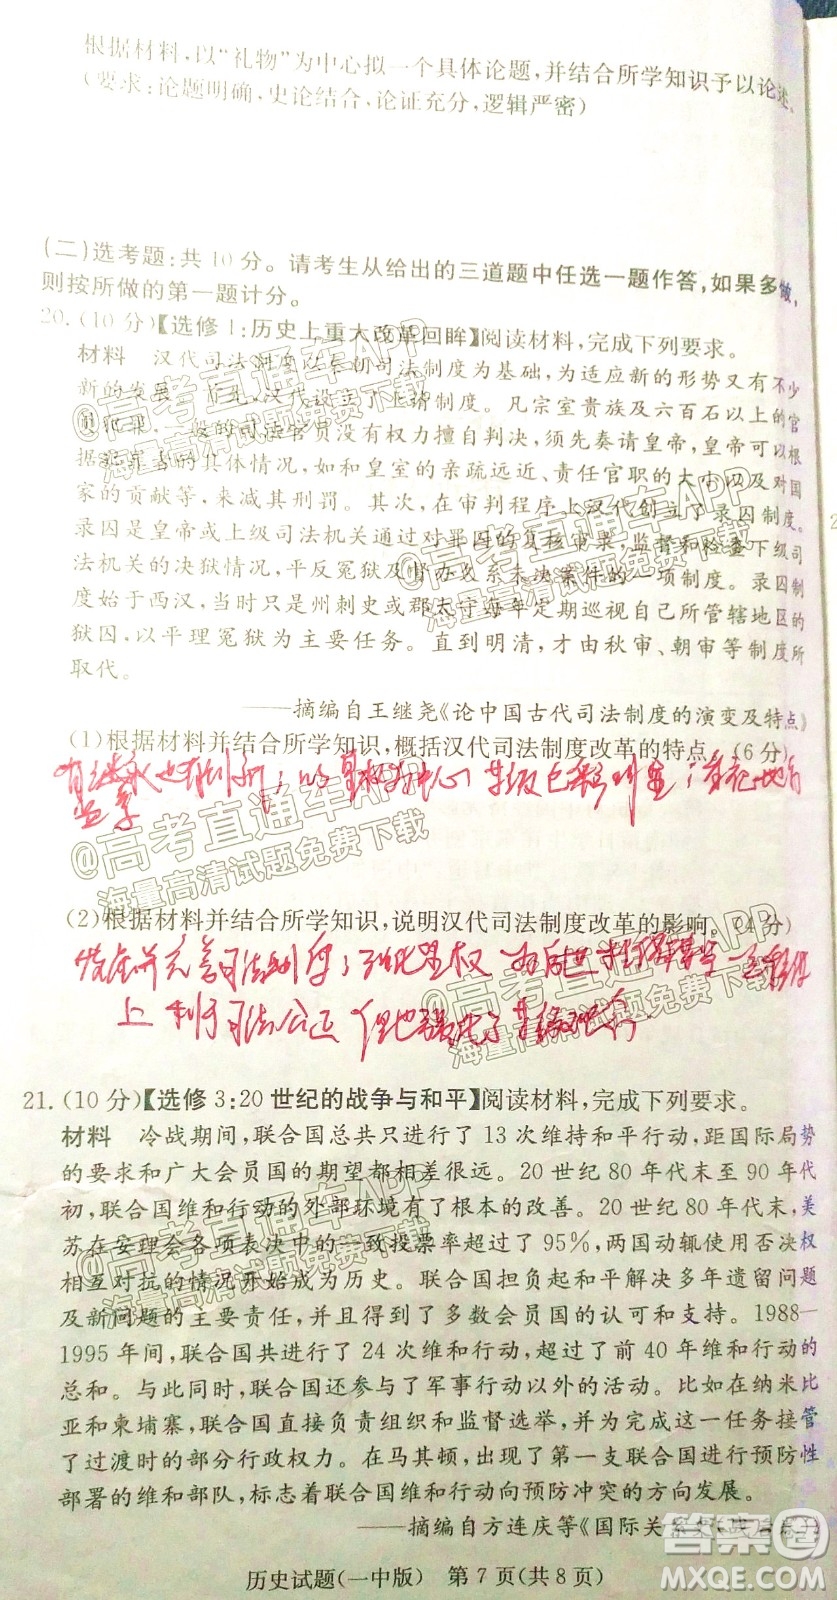 根据材料,以“礼物”为中心拟一个具体论题,并结合所学知识予以论述。
(要求:论题明确,史论结合,论证充分,逻辑严密)
(二)选考题:共10分。请考生从给出的三道题中任选一题作答,如果多做,
则按所做的第一题计分。
20.(10分)【选修1:历史上重大改革回眸】阅读材料,完成下列要求。
材料 汉代司法制度以秦朝司法制度为基础,为适应新的形势又有不少
新的发展。首先,汉代设立了上请制度。凡宗室贵族及六百石以上的官
员犯罪,一般的司法官员没有权力擅自判决,须先奏请皇帝,皇帝可以根
据犯罪者的具体情况,如和皇室的亲疏远近、责任官职的大小以及对国
家的贡献等,来减其刑罚。其次,在审判程序上汉代创立了录囚制度。
录囚是皇帝或上级司法机关通过对罪囚的复核审录,监督和检查下级司
法机关的决狱情况,平反冤狱及督办久系未决案件的一项制度。录囚制
度始于西汉,当时只是州刺史或郡太守每年定期巡视自己所管辖地区的
狱囚,以平理冤狱为主要任务。直到明清,才由秋审、朝审等制度所
取代。
——摘编自王继尧《论中国古代司法制度的演变及特点》
(1)根据材料并结合所学知识,概括汉代司法制度改革的特点。(6分)
(2)根据材料并结合所学知识,说明汉代司法制度改革的影响。(4分)
上 利于司法公正 但也强化了
21.(10分)【选修3:20世纪的战争与和平】阅读材料,完成下列要求。
材料 冷战期间,联合国总共只进行了13次维持和平行动,距国际局势
的要求和广大会员国的期望都相差很远。20世纪80年代末至90年代
初,联合国维和行动的外部环境有了根本的改善。20世纪80年代末,美
苏在安理会各项表决中的一致投票率超过了95%,两国动辄使用否决权
相互对抗的情况开始成为历史。联合国担负起和平解决多年遗留问题
及新问题的主要责任,并且得到了多数会员国的认可和支持。1988-
1995年间,联合国共进行了24次维和行动,超过了前40年维和行动的
总和。与此同时,联合国还参与了军事行动以外的活动。比如在纳米比
亚和柬埔寨,联合国直接负责组织和监督选举,并为完成这一任务接管
了过渡时的部分行政权力。在马其顿,出现了第一支联合国进行预防性
部署的维和部队,标志着联合国维和行动向预防冲突的方向发展。
——摘编自方连庆等《国际关系史
历史试题(一中版) 第7页(共8页)
@高考直通车APP
海量高清试题免费下载
@高考直通车APP
海量高清试题免费下载
@高考直通车APP
海量高清试题免费下载
@高考直通车APP
海量高清试题免费下载
@高考直通车APP
海量高清试题免费下载
答案圈
MXQE.COM